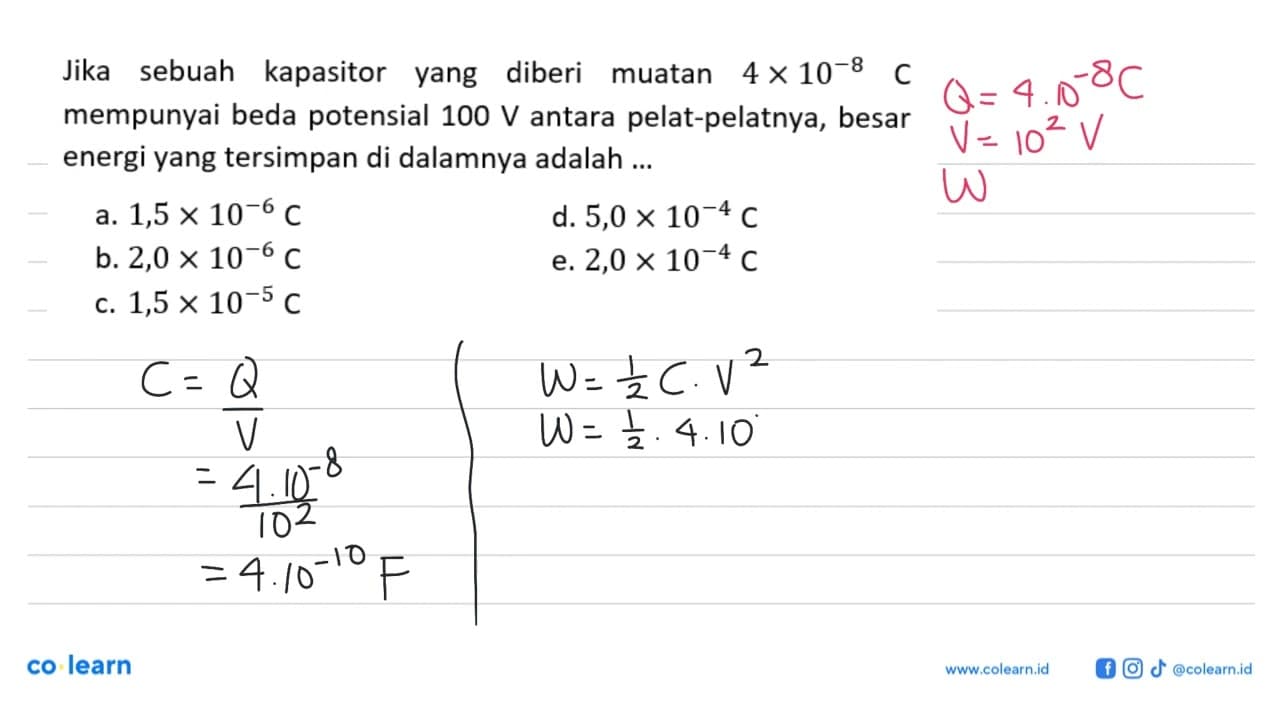 Jika sebuah kapasitor yang diberi muatan 4 × 10⁻⁸ C
mempunyai beda potensial 100 V antara pelat-pelatnya, besar
energi yang tersimpan di dalamnya adalah ...
a. 1,5 × 10⁻⁶ C
b. 2,0 × 10⁻⁶ C
c. 1,5 × 10⁻⁵ C
d. 5,0 × 10⁻⁴ C
e. 2,0 × 10⁻⁴ C
Q = 4.10⁻⁸ C
V = 10² V
W
C = Q
V
= 4.10⁻⁸
10²
= 4.10⁻¹⁰ F
W = 1/2 C. V²
W = 1/2 . 4.10
co learn
www.colearn.id
@colearn.id